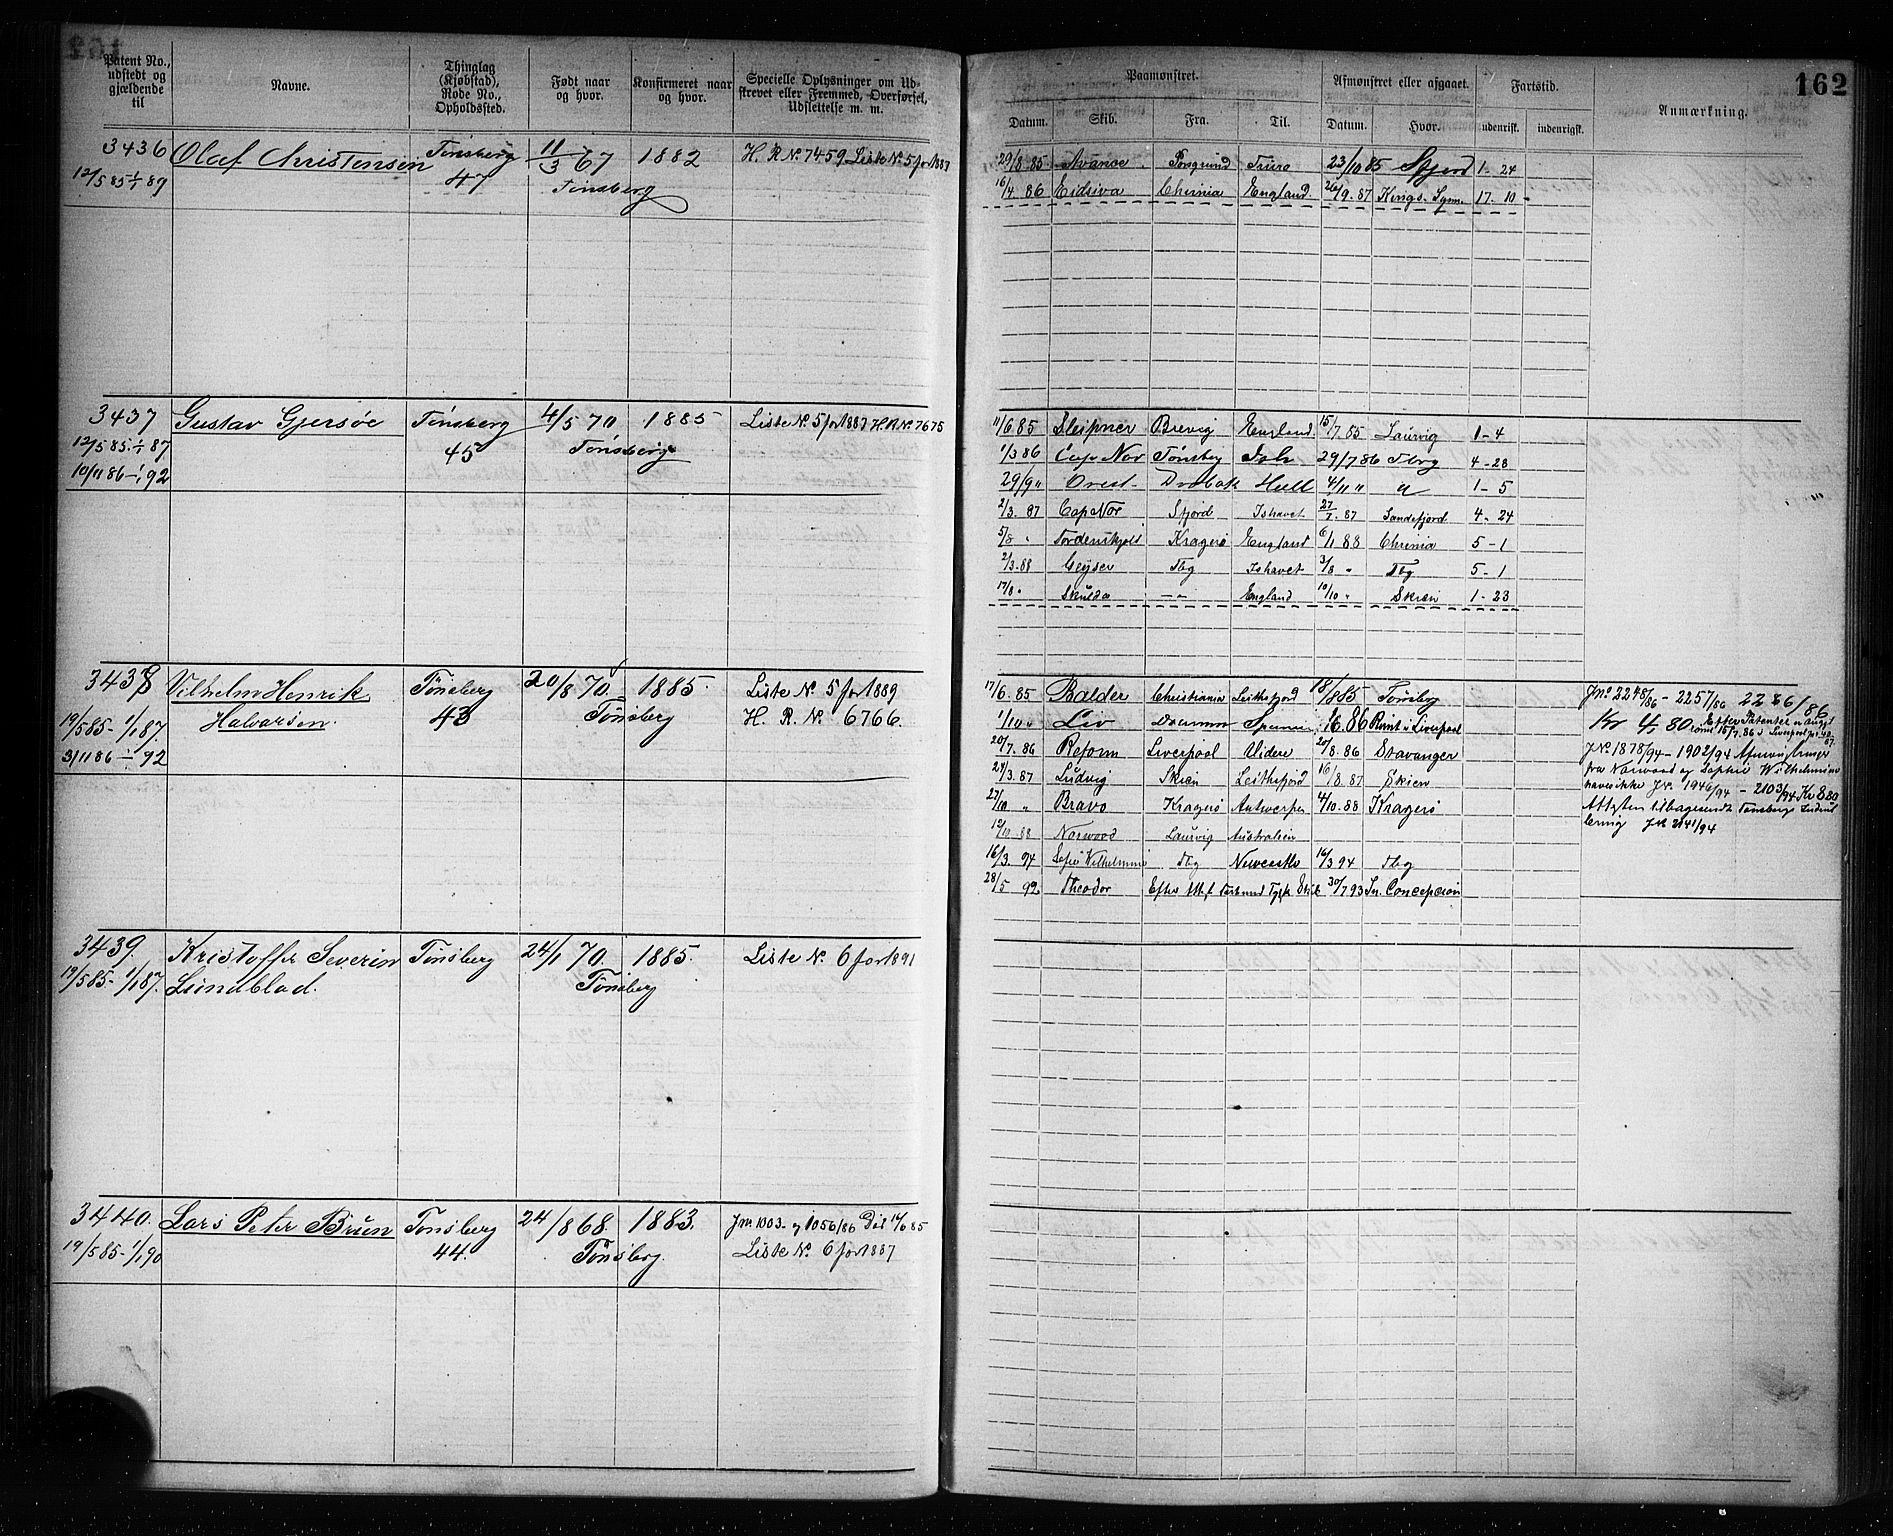 162
Patent No., udstedt og gjældende til
Navne.
Thinglag (Kjøbstad), Rode No., Opholdssted.
Født naar og hvor.
Konfirmeret naar og hvor.
Specielle Oplysninger om Udskrevet eller Fremmed, Overførsel, Udslettelse m. m.
Paamønstret.
Afmønstret eller afgaaet.
Fartstid.
Anmærkning.
Datum. Skib. Fra. Til. Datum. Hvor. udenrisk. indenrigsk.
3436 Olaf Christensen Tønsberg 11/3 67 1882 H. R. No. 7459 Liste No. 5 for 1887
12/5 85 - 1/1 89 47 Tønsberg
29/8 85 Porsgrund Truro 23/10 85 1 - 24
16/4. 86 Eidsiva Chrinia England 26/9. 87 Kings-Lynn. 17. 10
3437 Gustav Gjersøe Tønsberg 4/5 70 1885 Liste No. 5 for 1887 H.R. No. 7675
12/5 85 - 1/1 87 45 Tønsberg
10/11 86 - 1/1 92
11/6 85 Sleipner Brevig England 15/7. 85 Laurvig 1 - 4
1/3 86 Cap Nor Tønsberg Ish 29/7 86 Tbrg 4 - 28
29/9 " Orest Drøbak Hull 4/11 " " 1 - 5
2/3. 87 Cap Nor Sfjord Ishavet 27/7. 87 Sandefjord 4 - 24
5/8 " Tordenskjold Kragerø England 6/1 88 Chrinia 5 - 1
2/3. 88 Geyser Tbg Ishavet 3/8 " Tbg 5 - 1
17/8 " Skulda — " England 10/10 " Skien 1 - 23
3438 Vilhelm Henrik Tønsberg 20/8 70 1885. Liste No. 5 for 1889
19/5 85 - 1/1 87. Halvorsen. 43 Tønsberg H. R. No. 6766.
3/11 86 - 1/1 92
17/6. 85 Balder Christiania Leithsfjord 18/8 85 Tønsbg
1/10 " Liv Drammen Spanien 86 Rømt i Liverpool
20/7. 86 Reform Liverpool Videre 20/8. 86 Stavanger
24/3. 87 Ludvig Skien Leithsfjord 16/8. 87 Skien
27/10 " Bravo Kragerø Antwerpen 4/10. 88 Kragerø
12/11 88 Norwood Laurvig Australien
16/3. 94 Sofie Vilhelmine Tbg Newcastle 16/3 94 Tbg
28/5 92 Theodor Efter 30/7 93 Concepcion
Jno 2248/86 - 2257/86 2286/86
Kr 4,80 Efter
J.No. 1878/94 - 1902/94
fra Norwood og Sophie Wilhelmine
haves ikke J.No. 1946/94 - 2103/94 Kr 8.80
Attesten tilbagesendt Tønsberg
J.No. 2141/94
3439. Kristoffer Severin Tønsberg 24/1 70. 1885. Liste No. 6 for 1891
19/5 85 - 1/1 87. Lundblad. Tønsberg
3440. Lars Peter Brun Tønsberg 24/8 68 1883. Jno. 1003 - og 1056/86
19/5 85 - 1/1 90 44. Tønsberg. Liste No. 6 for 1887